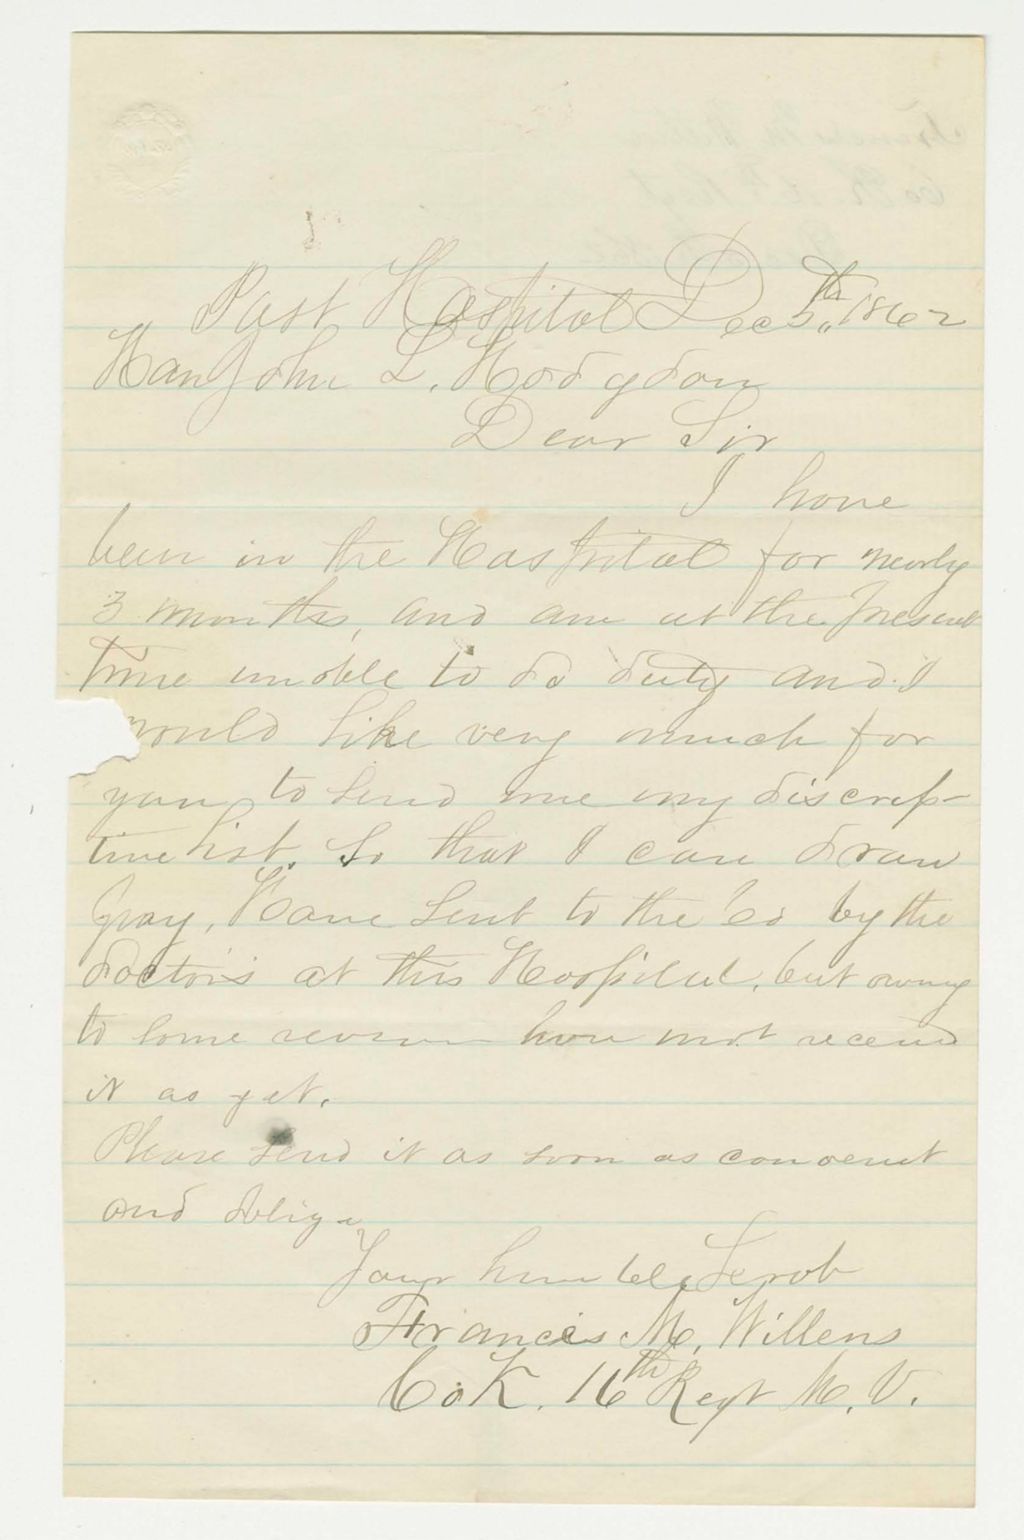 Post Hospital Dec 5th, 1862
Hon John L. Hodgdon
Dear Sir
I have
been in the Hospital for nearly
3 months, and am at the present
time unable to do duty and I
would like very much for
you to send me my discrip-
tive list. So that I can draw
pay, Have sent to the Co by the
doctors at this Hospital, but owing
to some reason have not received
it as yet.
Please send it as soon as convenient
and oblige
Your humble Servt
Francis M. Willens
Co. K. 16th Regt M. V.